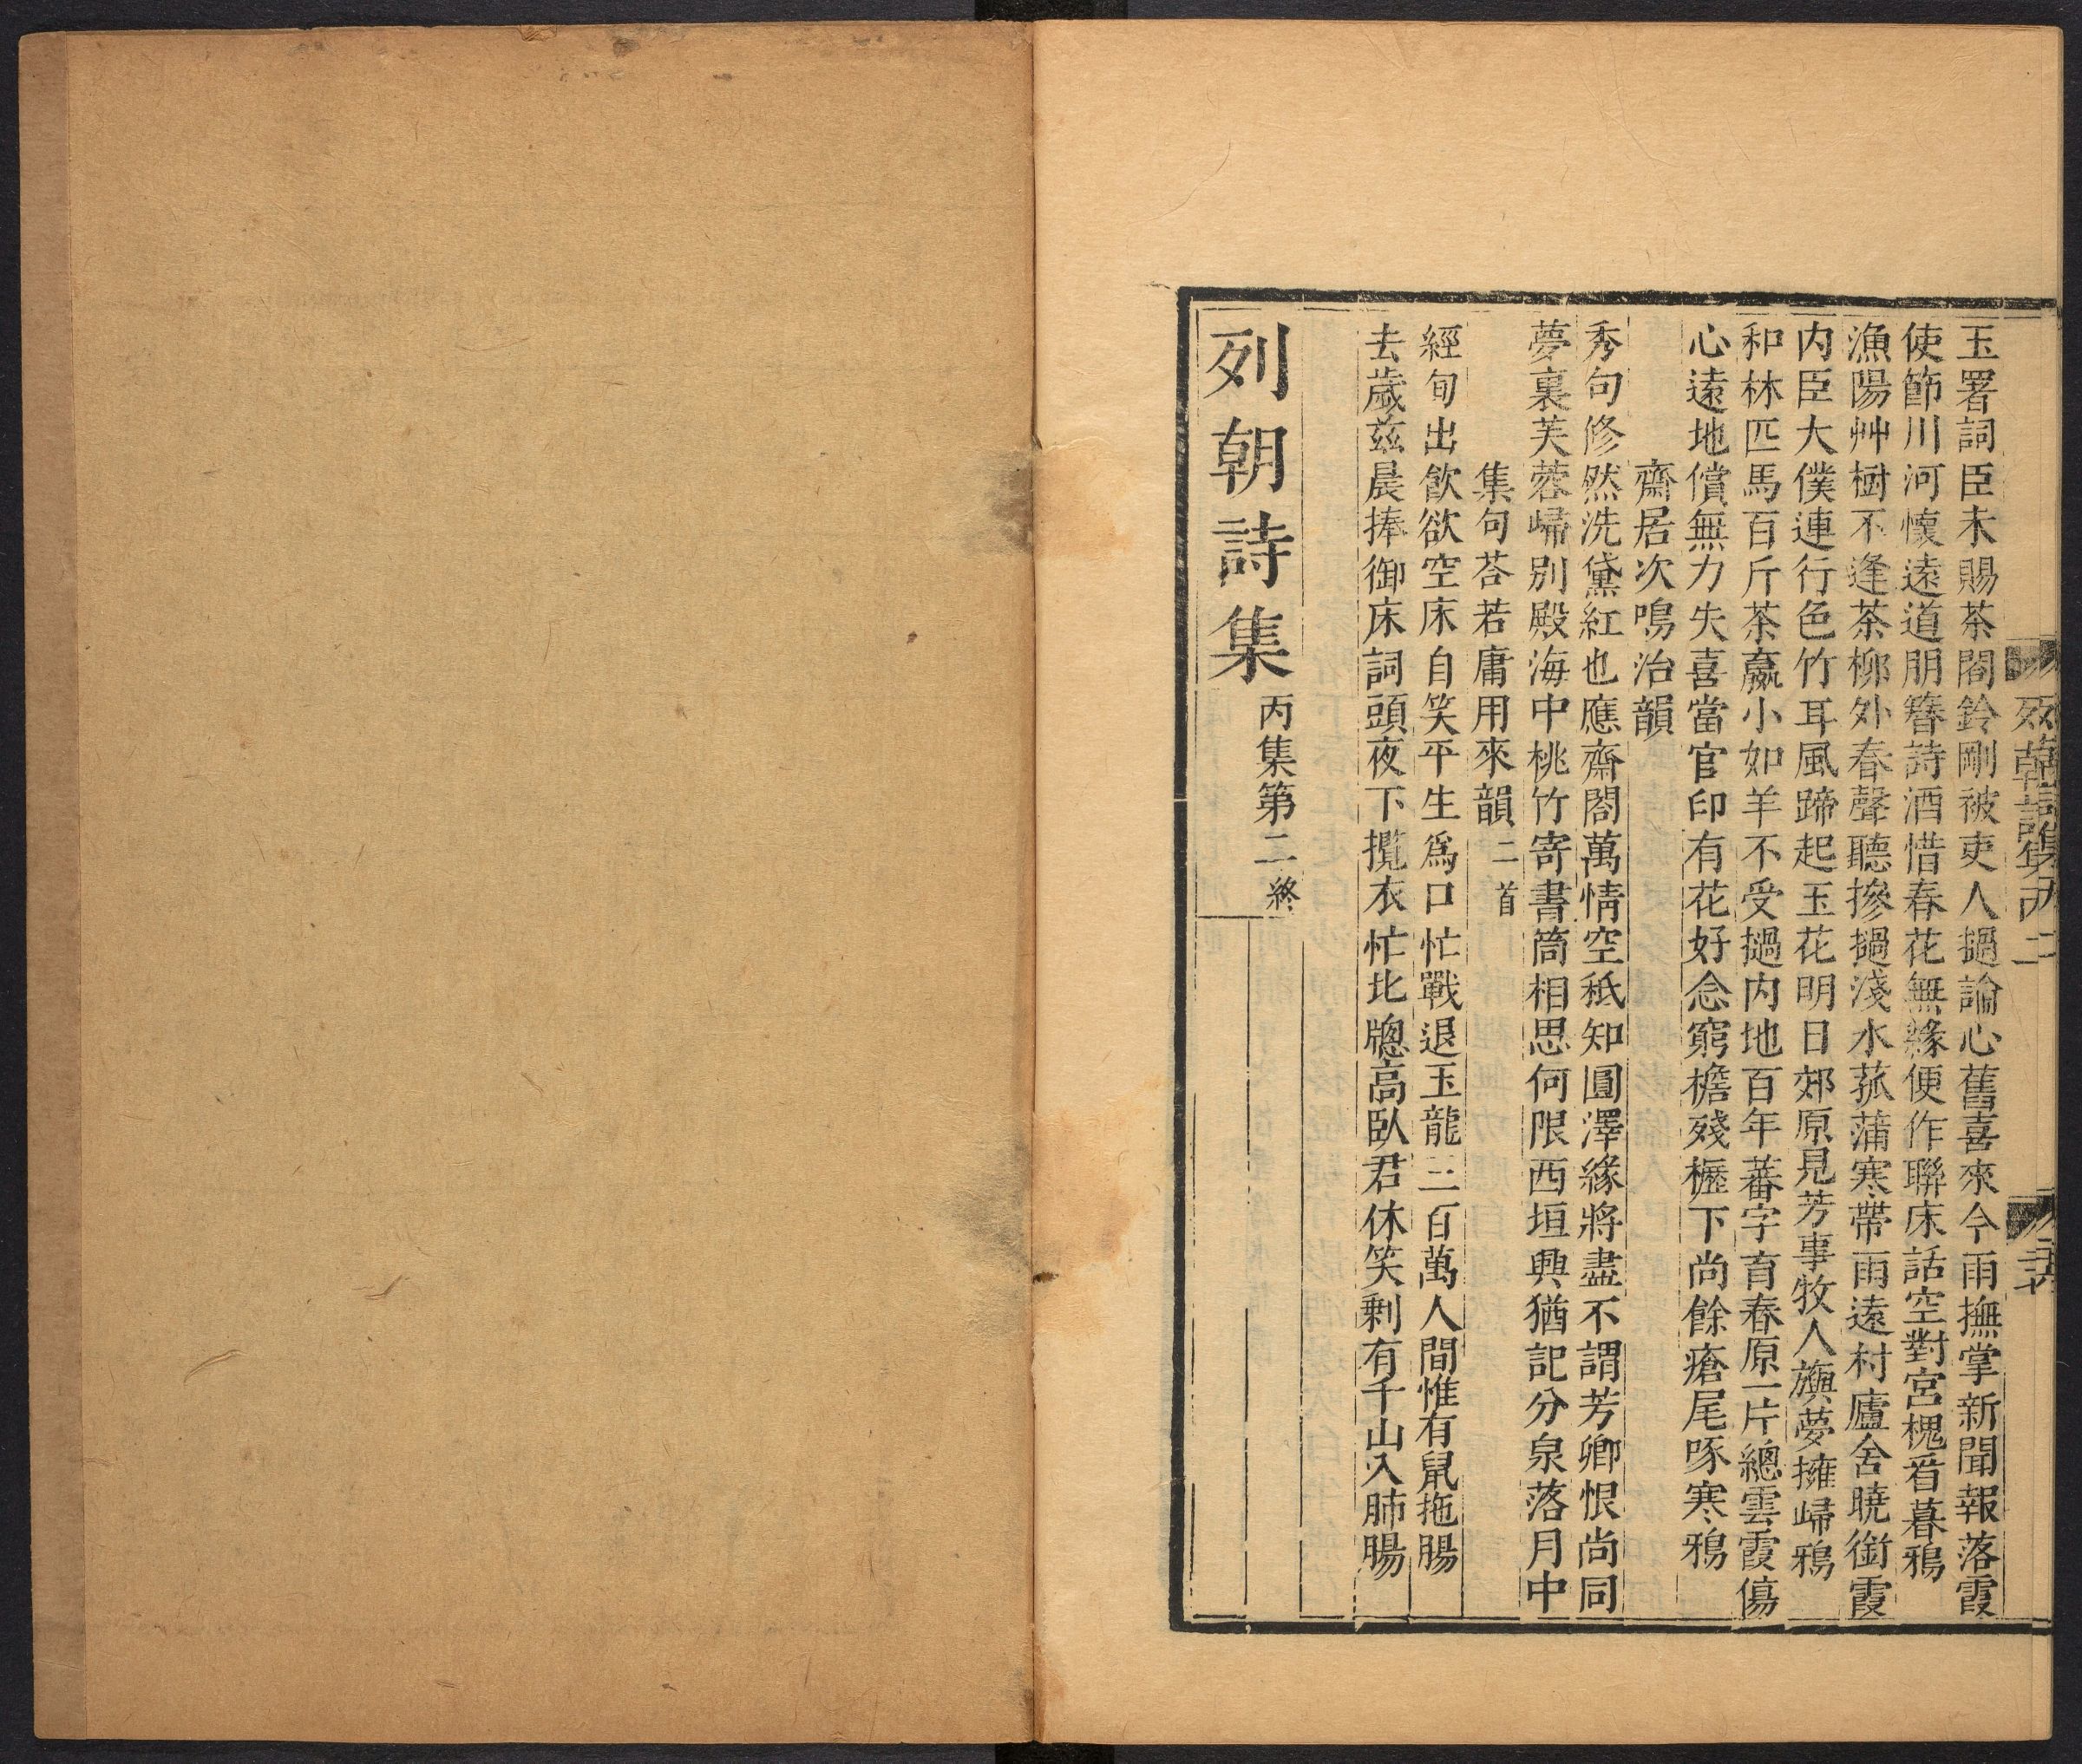 玉署詞臣未賜茶閣鈴剛被吏人撾論心舊喜來今雨撫掌新聞報落霞
使節川河懷遠道朋簪詩酒惜春花無緣便作聯床話空對宮槐看暮鴉
漁陽艸樹不逢茶柳外春聲聽摻撾淺水菰蒲寒帶雨遠村廬舍曉銜霞
內臣大僕連行色竹耳風蹄起玉花明日郊原見芳事牧人旟夢擁歸鴉
和林匹馬百斤茶羸小如羊不受撾內地百年蕃字育春原一片總雲霞傷
心遠地償無力失喜當官印有花好念窮檐殘櫪下尚餘瘡尾啄寒鴉
齋居次鳴治韻
秀句修然洗黛紅也應齋閤萬情空秪知圓澤緣將盡不謂芳卿恨尚同
夢裏芙蓉歸別殿海中桃竹寄書筒相思何限西垣興猶記分泉落月中
集句荅若庸用來韻二首
經旬出飲欲空床自笑平生為口忙戰退玉龍三百萬人間惟有鼠拖腸
去歲茲晨捧御床詞頭夜下攬衣忙北牕高臥君休笑剩有千山入肺腸
列朝詩集丙集第二終